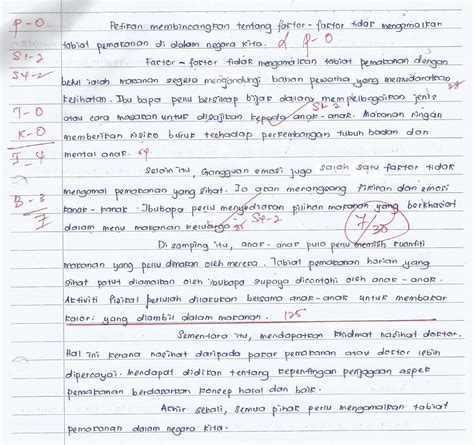 P-0 Petikan membincangkan tentang faktor-faktor tidak mengamalkan
tabiat pemakanan di dalam negara kita. α P-0
S1-2 Faktor - faktor tidak mengamalkan tabiat pemakanan dengan
S4-2 betul ialah makanan segera mengandungi bahan pewarna yang memudaratkan
kesihatan. Ibu bapa perlu bersikap bijak dalam mempelbagaikan jenis
T-0 atau cara masakan untuk disajikan kepada anak-anak. Makanan ringan S1-2
K-0 memberikan risiko buruk terhadap perkembangan tubuh badan dan
I-4 mental anak. 54
Selain itu, Gangguan emosi juga salah satu faktor tidak
B-3 mengamal pemakanan yang sihat. Ia akan merangsang fikiran dan emosi
7 kanak-kanak. Ibubapa perlu menyediakan pilihan makanan yang berkhasiat
dalam menu makanan keluarga. S4-2 7/30
Di samping itu, anak-anak pula perlu memilih kuantiti
makanan yang perlu dimakan oleh mereka. Tabiat pemakanan harian yang
sihat patut diamalkan oleh ibubapa supaya dicontohi oleh anak-anak.
Aktiviti fizikal perlulah dilakukan bersama anak-anak untuk membakar
kalori yang diambil dalam makanan. 125
Sementara itu, mendapatkan khidmat nasihat doktor.
Hal ini kerana nasihat daripada pakar pemakanan atau doktor lebih
dipercayai. Mendapat didikan tentang kepentingan penjagaan aspek
pemakanan berdasarkan konsep halal dan baik.
Akhir sekali, semua pihak perlu mengamalkan tabiat
pemakanan dalam negara kita.